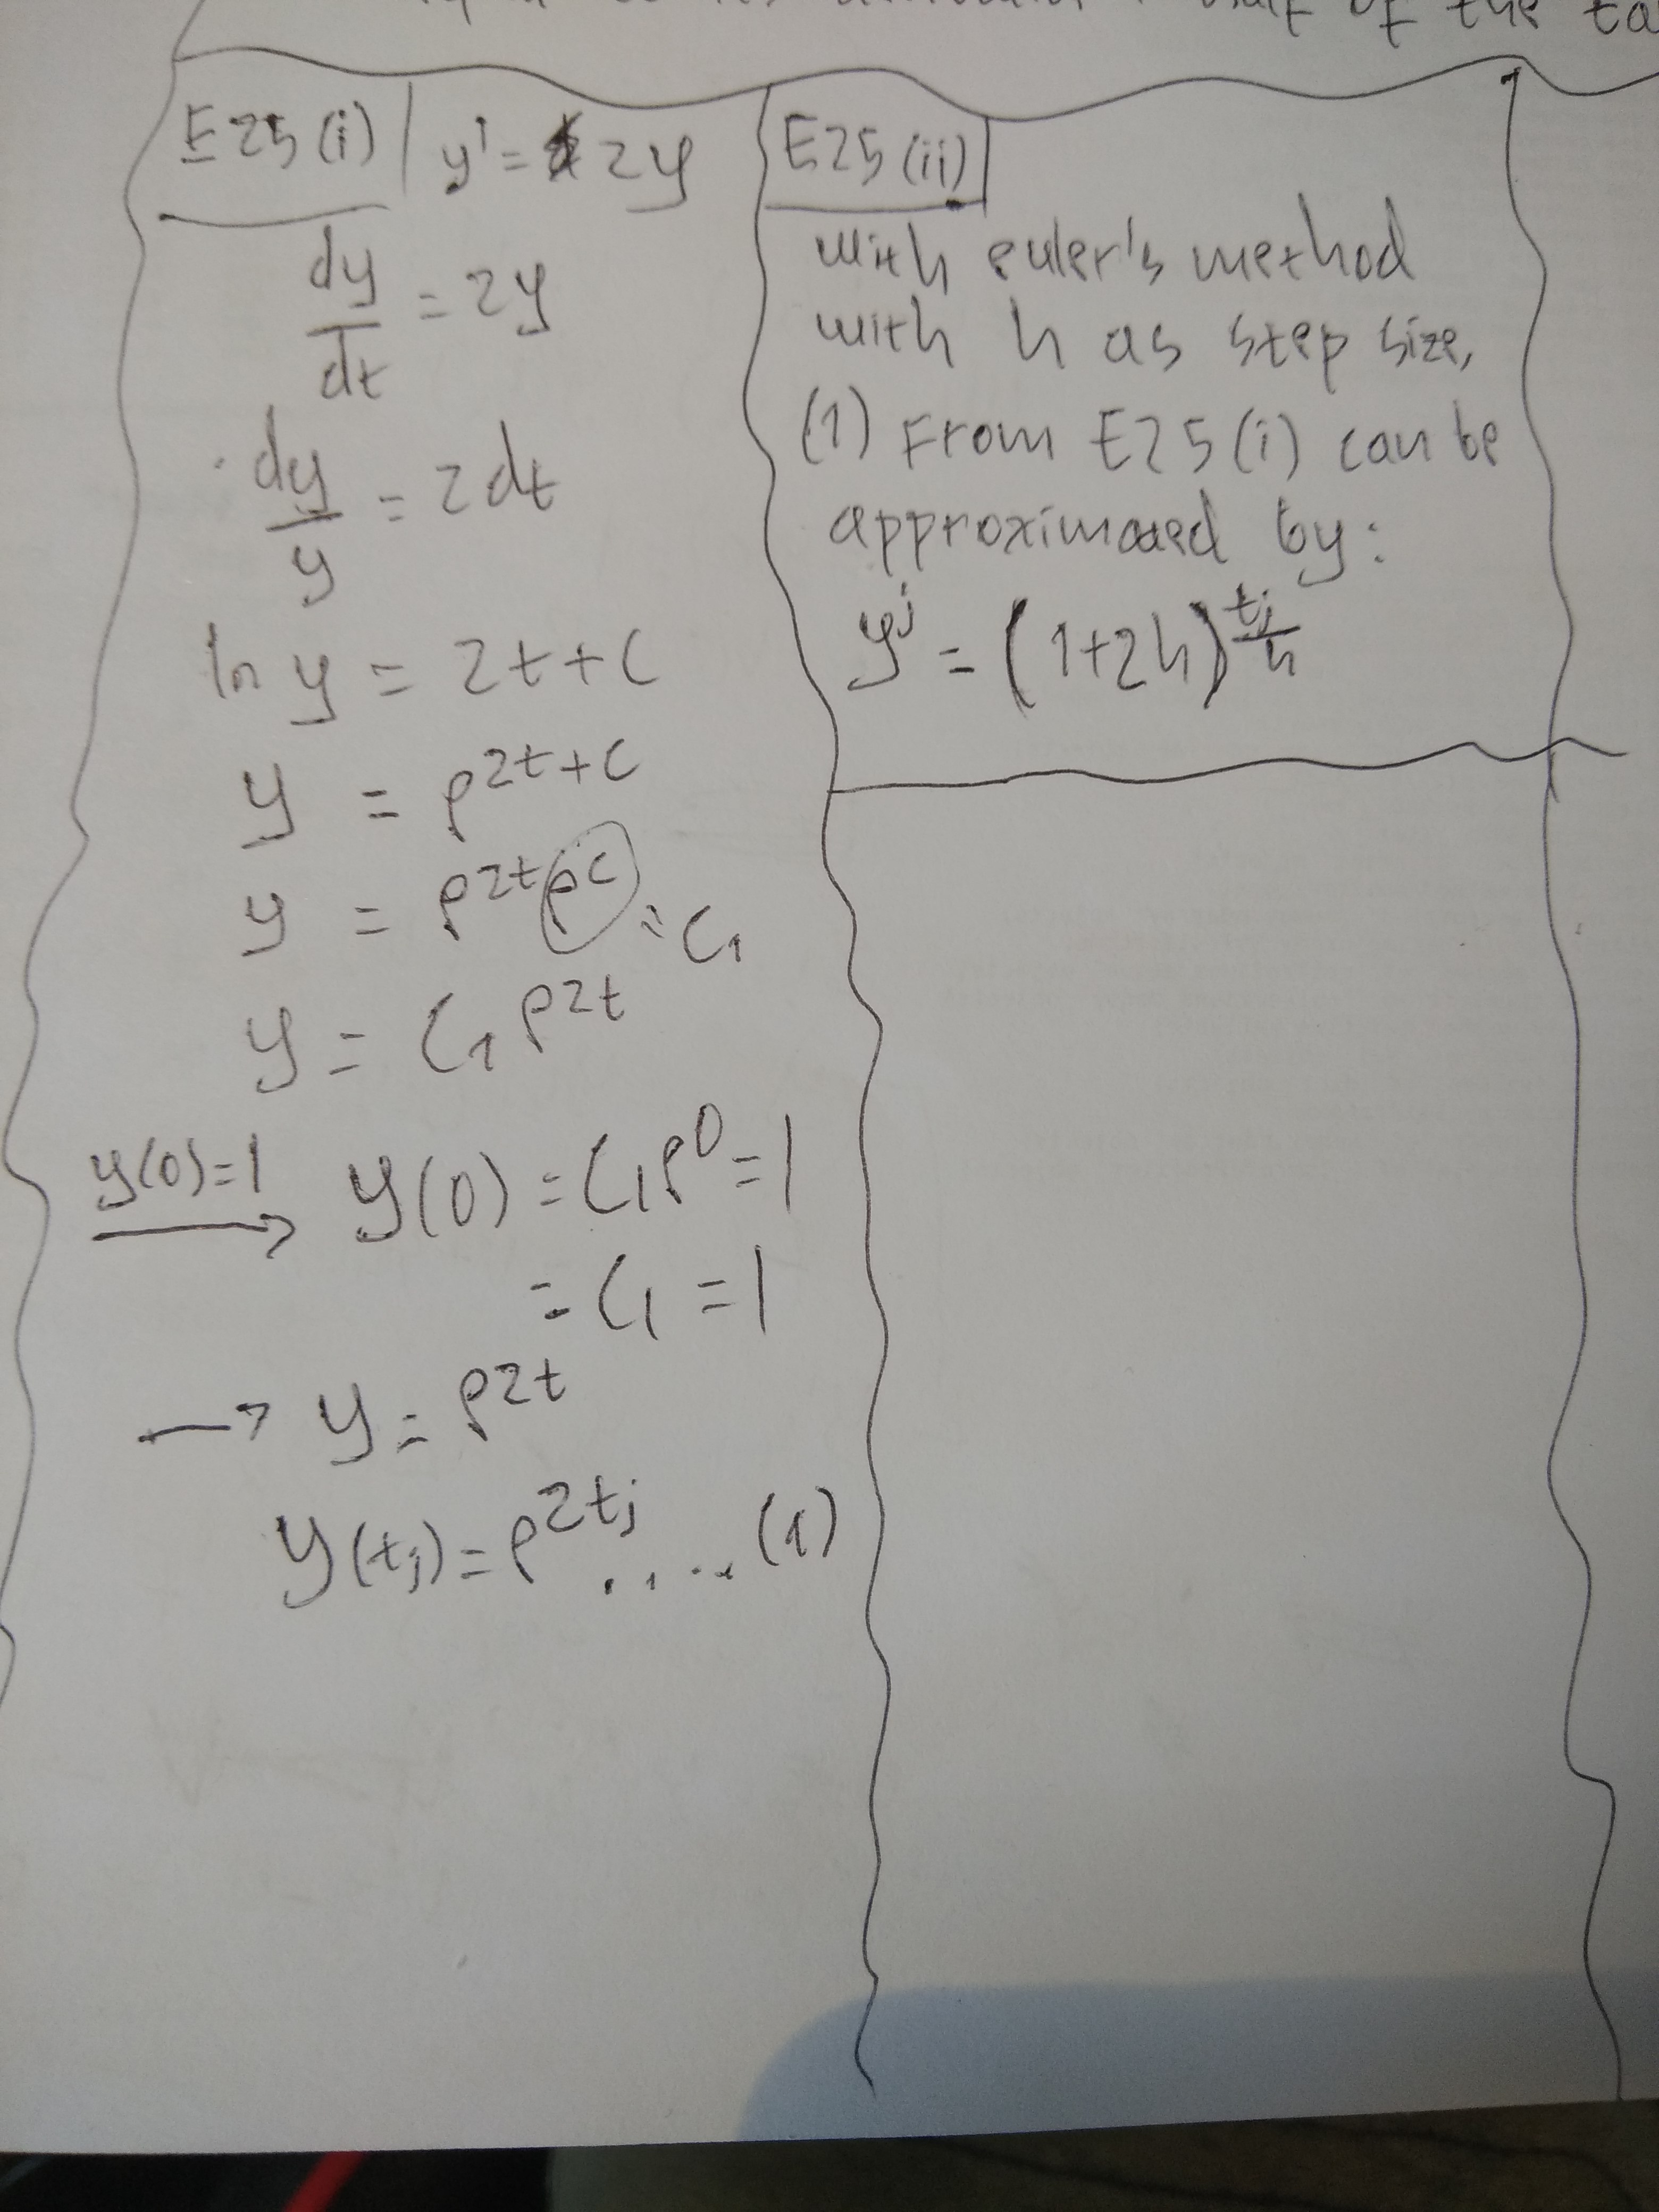 of the
E25 (i) y' = 2y
dy/dt = 2y
dy/y = 2dt
ln y = 2t + c
y = e^{2t+c}
y = e^{2t} e^c = c₁
y = c₁ e^{2t}
y(0)=1 → y(0) = c₁e^0 = 1
= c₁ = 1
→ y = e^{2t}
y(tⱼ) = e^{2tⱼ} .... (1)
E25 (ii)
with euler's method
with h as step size,
(1) From E25 (i) can be
approximated by:
y^j = (1+2h)^{tⱼ/h}